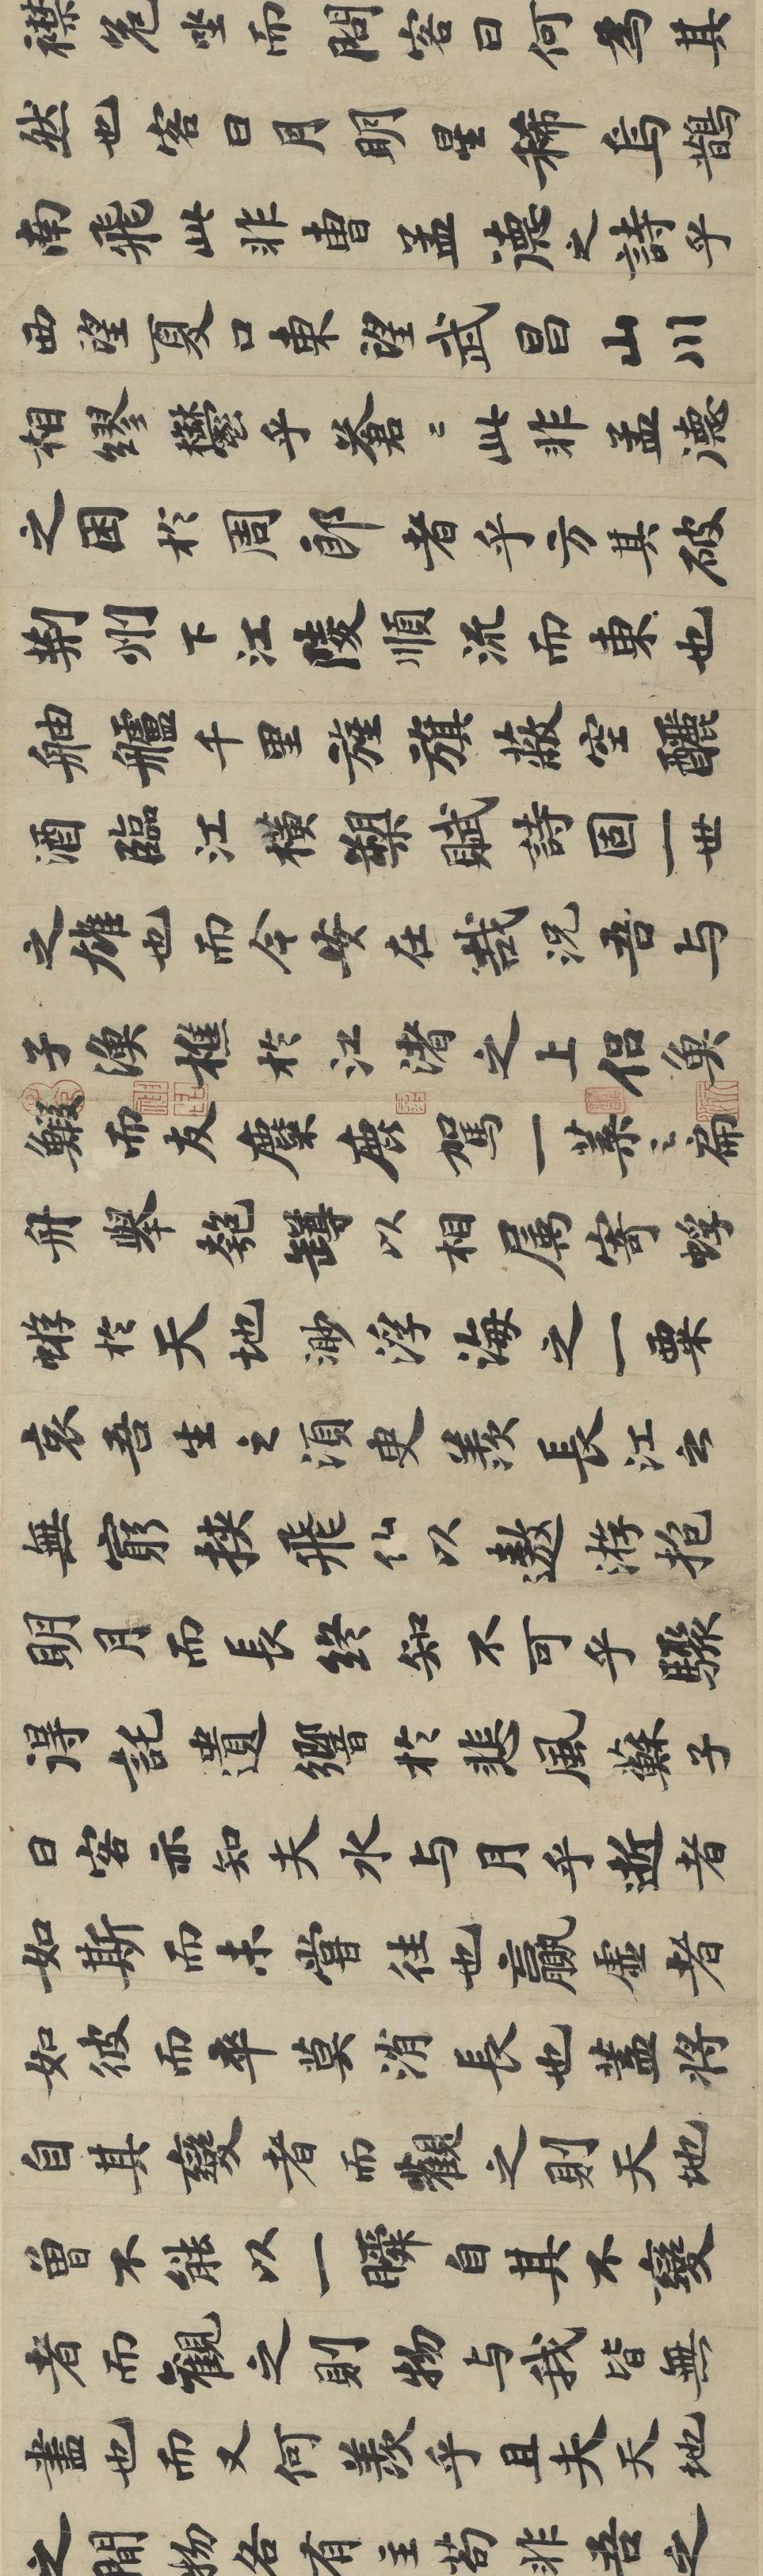 襟危坐而問客曰何為其
然也客曰月明星稀烏鵲
南飛此非曹孟德之詩乎
西望夏口東望武昌山川
相繆鬱乎蒼〻此非孟德
之困於周郎者乎方其破
荊州下江陵順流而東也
舳艫千里旌旗蔽空釃
酒臨江橫槊賦詩固一世
之雄也而今安在哉況吾与
子漁樵於江渚之上侶魚
鰕而友麋鹿駕一葉之扁
舟舉匏罇以相属寄蜉
蝣於天地渺浮海之一粟
哀吾生之須臾羨長江之
無窮挾飛仙以遨游抱
明月而長終知不可乎驟
得託遺響於悲風蘇子
曰客亦知夫水与月乎逝者
如斯而未嘗往也贏虛者
如彼而卒莫消長也蓋將
自其變者而觀之則天地
曾不能以一瞬自其不變
者而觀之則物与我皆無
盡也而又何羨乎且夫天地
之間物各有主苟非吾之